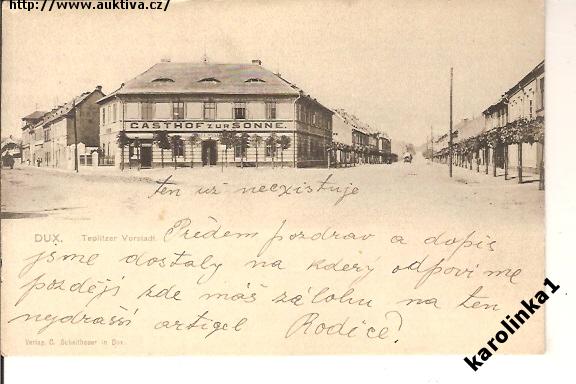 http://www.auktiva.cz/
GASTHOF ZUR SONNE.
ten už neexistuje
DUX. Teplitzer Vorstadt.
Předem pozdrav a dopis
jsme dostaly na kderý odpovíme
později zde máš zálohu na ten
nejdrašší artigel Rodiče!
Verlag C. Scheithauer in Dux.
karolinka1